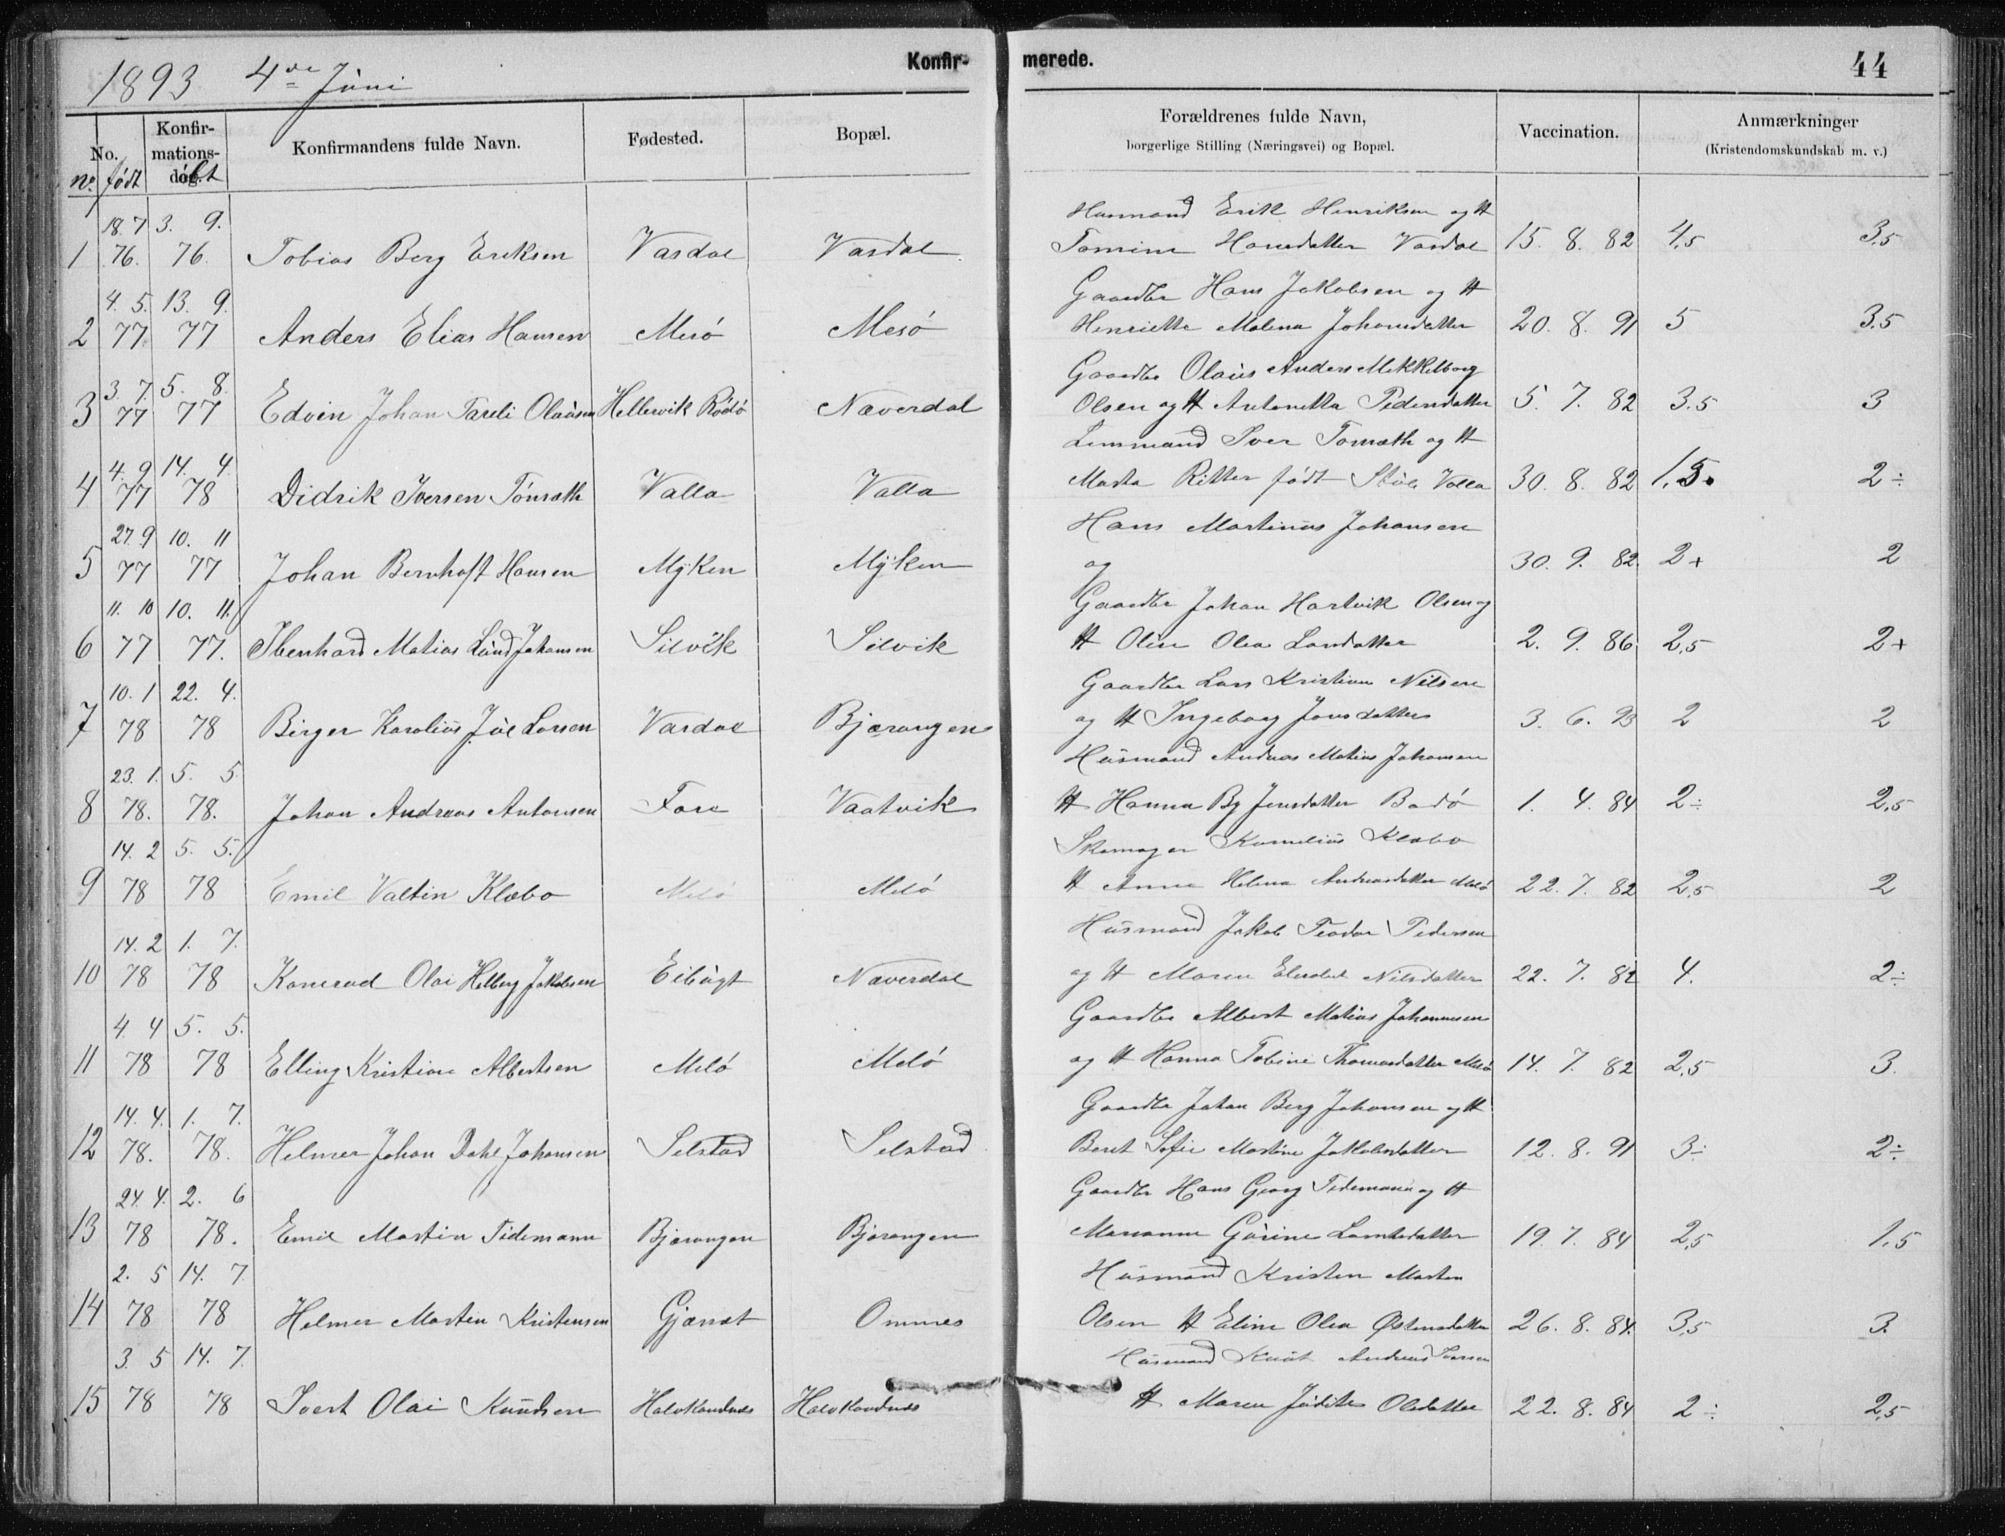 1893 4de Juni
Konfir-
merede.
44
No.
Konfir-
mations-
dag.
no. født
døbt
Konfirmandens fulde Navn.
Fødested.
Bopæl.
Forældrenes fulde Navn,
borgerlige Stilling (Næringsvei) og Bopæl.
Vaccination.
Anmærkninger
(Kristendomskundskab m. v.)
18. 7 3. 9. Husmand Erik Henriksen og H
1 76. 76. Tobias Berg Eriksen Vasdal Vasdal Hansdatter Vasdal 15. 8. 82 4,5 3,5
4. 5. 13. 9. Gaardbr Hans Jakobsen og H
2 77 77 Anders Elias Hansen Mesö Mesö Henriette Malena Johansdatter 20. 8. 91 5 3.5
3. 7. 5. 8. Gaardbr Olaüs Anders Mekkelborg
3 77 77 Edvin Johan Olaüsen Rödö Næverdal Olsen og H Antonetta Pedersdatter 5. 7. 82 3.5 3
4. 9 14. 4. Iver og H
4 77 78 Didrik Iversen Valla Valla Ritter født Valla 30. 8. 82 1,5. 2÷
27. 9 10. 11 Hans Martinus Johansen
5 77 77 Johan Bernhoft Hansen Myken Myken og 30. 9. 82 2+ 2
11. 10 10. 11. Gaardbr Johan Hartvik Olsen og
6 77 77. Matias Lünd Johansen Silvik Silvik H Oline Olea Larsdatter 2. 9. 86 2,5 2+
10. 1 22. 4. Gaardbr Lars Kristian Nilsen
7 78 78 Birger Karolius Juel Larsen Vasdal Bjærangen og H Ingeborg Jonsdatter 3. 6. 93 2 2
23. 1. 5. 5. Hüsmand Andreas Matias Johansen
8 78. 78. Johan Andreas Antonsen Fore Vaatvik H Hanna Jensdatter Bodö 1. 4. 84 2÷ 2,5
14. 2 5. 5. Skomager Kornelius Klæbo
9 78 78 Emil Valtin Klæbo Melö Melö H Anne Helena Andreasdatter Melö 22. 7. 82 2,5 2
14. 2 1. 7. Hüsmand Jakob Teodor Pedersen
10 78 78 Konerad Olai Helberg Jakobsen Næverdal og H Maren Nilsdatter 22. 7. 82 4. 2÷
4 4 5. 5. Gaardbr Albert Matias Johannesen
11 78 78 Elling Kristian Albertsen Melö Melö og H Hanna Tobine Thomasdatter Melö 14. 7. 82 2,5 3.
14. 4. 1. 7. Gaardbr Johan Berg Johansen og H
12 78. 78. Helmer Johan Dahl Johansen Selstad Selstad Beret Sofie Martine Jakobsdatter 12. 8. 91 3÷ 2÷
24. 4. 2. 6 Gaardbr Hans Georg Tidemann og H
13 78 78. Emil Martin Tidemann Bjærangen Bjærangen Marianne Gürine 19. 7. 84 2,5 1,5
2. 5 14. 7. Hüsmand Kristen Morten
14 78 78 Helmer Morten Kristensen Omnes Olsen H Eline Olea Østensdatter 26. 8. 84. 3,5 3.
3 5 14. 7. Hüsmand Knüt Andreas Iversen
15 78 78 Ivert Olai Knüdsen Halvkandnes Halvkandnes H Maren Judite Olsdatter 22. 8. 84 2÷ 2,5